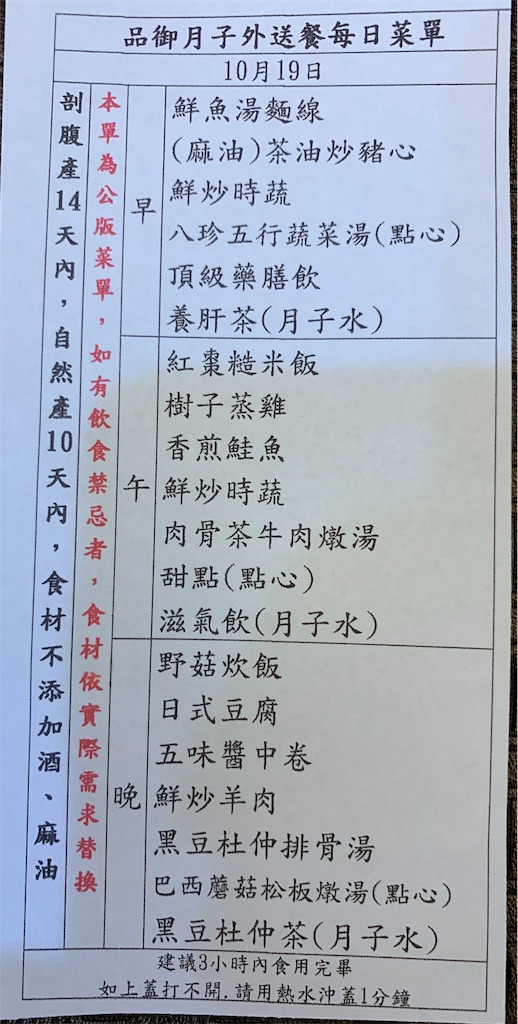 品御月子外送餐每日菜單
10月19日
剖腹產14天內，自然產10天內，食材不添加酒、麻油
本單為公版菜單，如有飲食禁忌者，食材依實際需求替換
早
鮮魚湯麵線
(麻油)茶油炒豬心
鮮炒時蔬
八珍五行蔬菜湯(點心)
頂級藥膳飲
養肝茶(月子水)
午
紅棗糙米飯
樹子蒸雞
香煎鮭魚
鮮炒時蔬
肉骨茶牛肉燉湯
甜點(點心)
滋氣飲(月子水)
晚
野菇炊飯
日式豆腐
五味醬中卷
鮮炒羊肉
黑豆杜仲排骨湯
巴西蘑菇松板燉湯(點心)
黑豆杜仲茶(月子水)
建議3小時內食用完畢
如上蓋打不開.請用熱水沖蓋1分鐘